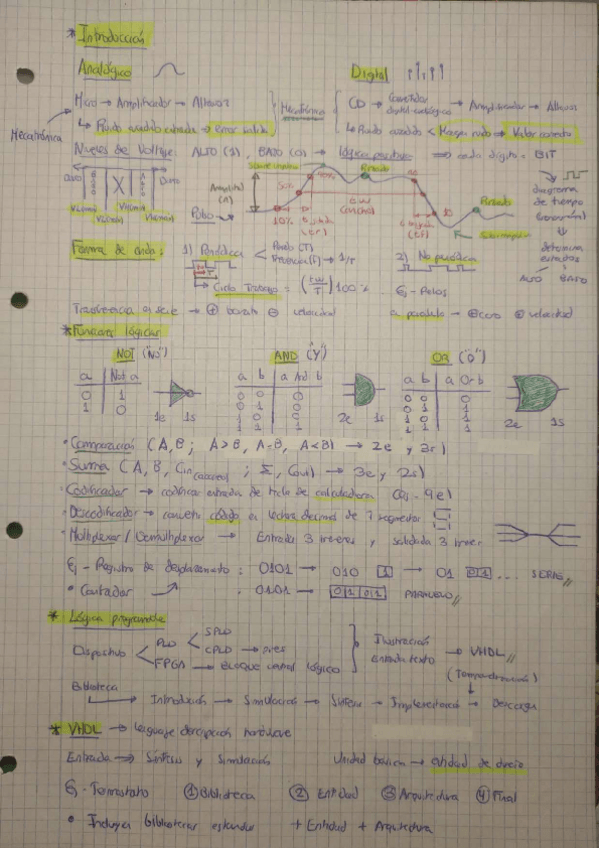 * Introducción
Analógico
Digital
Micro → Amplificador → Altavoz
Mecatrónica
CD → Convertidor digital-analógico → Amplificador → Altavoz
Mecatrónica
↳ Ruido añadido entrada → error salida
↳ Ruido añadido < Margen ruido → Valor correcto
Niveles de Voltaje ALTO (1), BAJO (0) → lógica positiva ⇒ cada dígito = BIT
Amplitud (A)
90%
50%
10%
Pulso
t subida (tr)
tw
90
10
t bajada (tf)
diagrama de tiempo
determina estados
ALTO BAJO
Forma de onda: 1) Periódica < Periodo (T)
Frecuencia (F) → 1/T
2) No periódica
↳ Ciclo Trabajo = (tw/T) 100%
Ej - Pulsos
Transferencia en serie → ⊕ barato ⊖ velocidad
a paralelo → ⊖ caro ⊕ velocidad
* Funciones lógicas
NOT ("No")
AND ("Y")
OR ("O")
a Not a
0 1
1 0
1e 1s
a b a And b
0 0 0
0 1 0
1 0 0
1 1 1
2e 1s
a b a Or b
0 0 0
0 1 1
1 0 1
1 1 1
2e 1s
• Comparación (A, B ; A>B, A=B, A<B) → 2e y 3s)
• Suma (A, B, Cin (acarreo) ; Σ, Cout) → 3e y 2s)
• Codificador → codificar entrada de tecla de calculadora
• Descodificador → convierte código en lectura decimal de 7 segmentos
• Multiplexor / Demultiplexor → Entrada 3 y salida 3
Ej - Registro de desplazamiento : 0101 → 010 1 → 01 01 ... SERIE //
• Contador : 0101 → 0101 PARALELO //
* Lógica programable
Dispositivo < PLD < SPLD
CPLD
FPGA → Bloque lógico
Ilustración
entrada texto → VHDL //
Biblioteca
→ Introducción → Simulación → Síntesis → Implementación → Descarga
* VHDL → lenguaje descripción hardware
Entrada → Síntesis y Simulación
Unidad básica → entidad de diseño
Ej - Termostato ① Biblioteca ② Entidad ③ Arquitectura ④ Final
• Incluye bibliotecas estándar + Entidad + Arquitectura